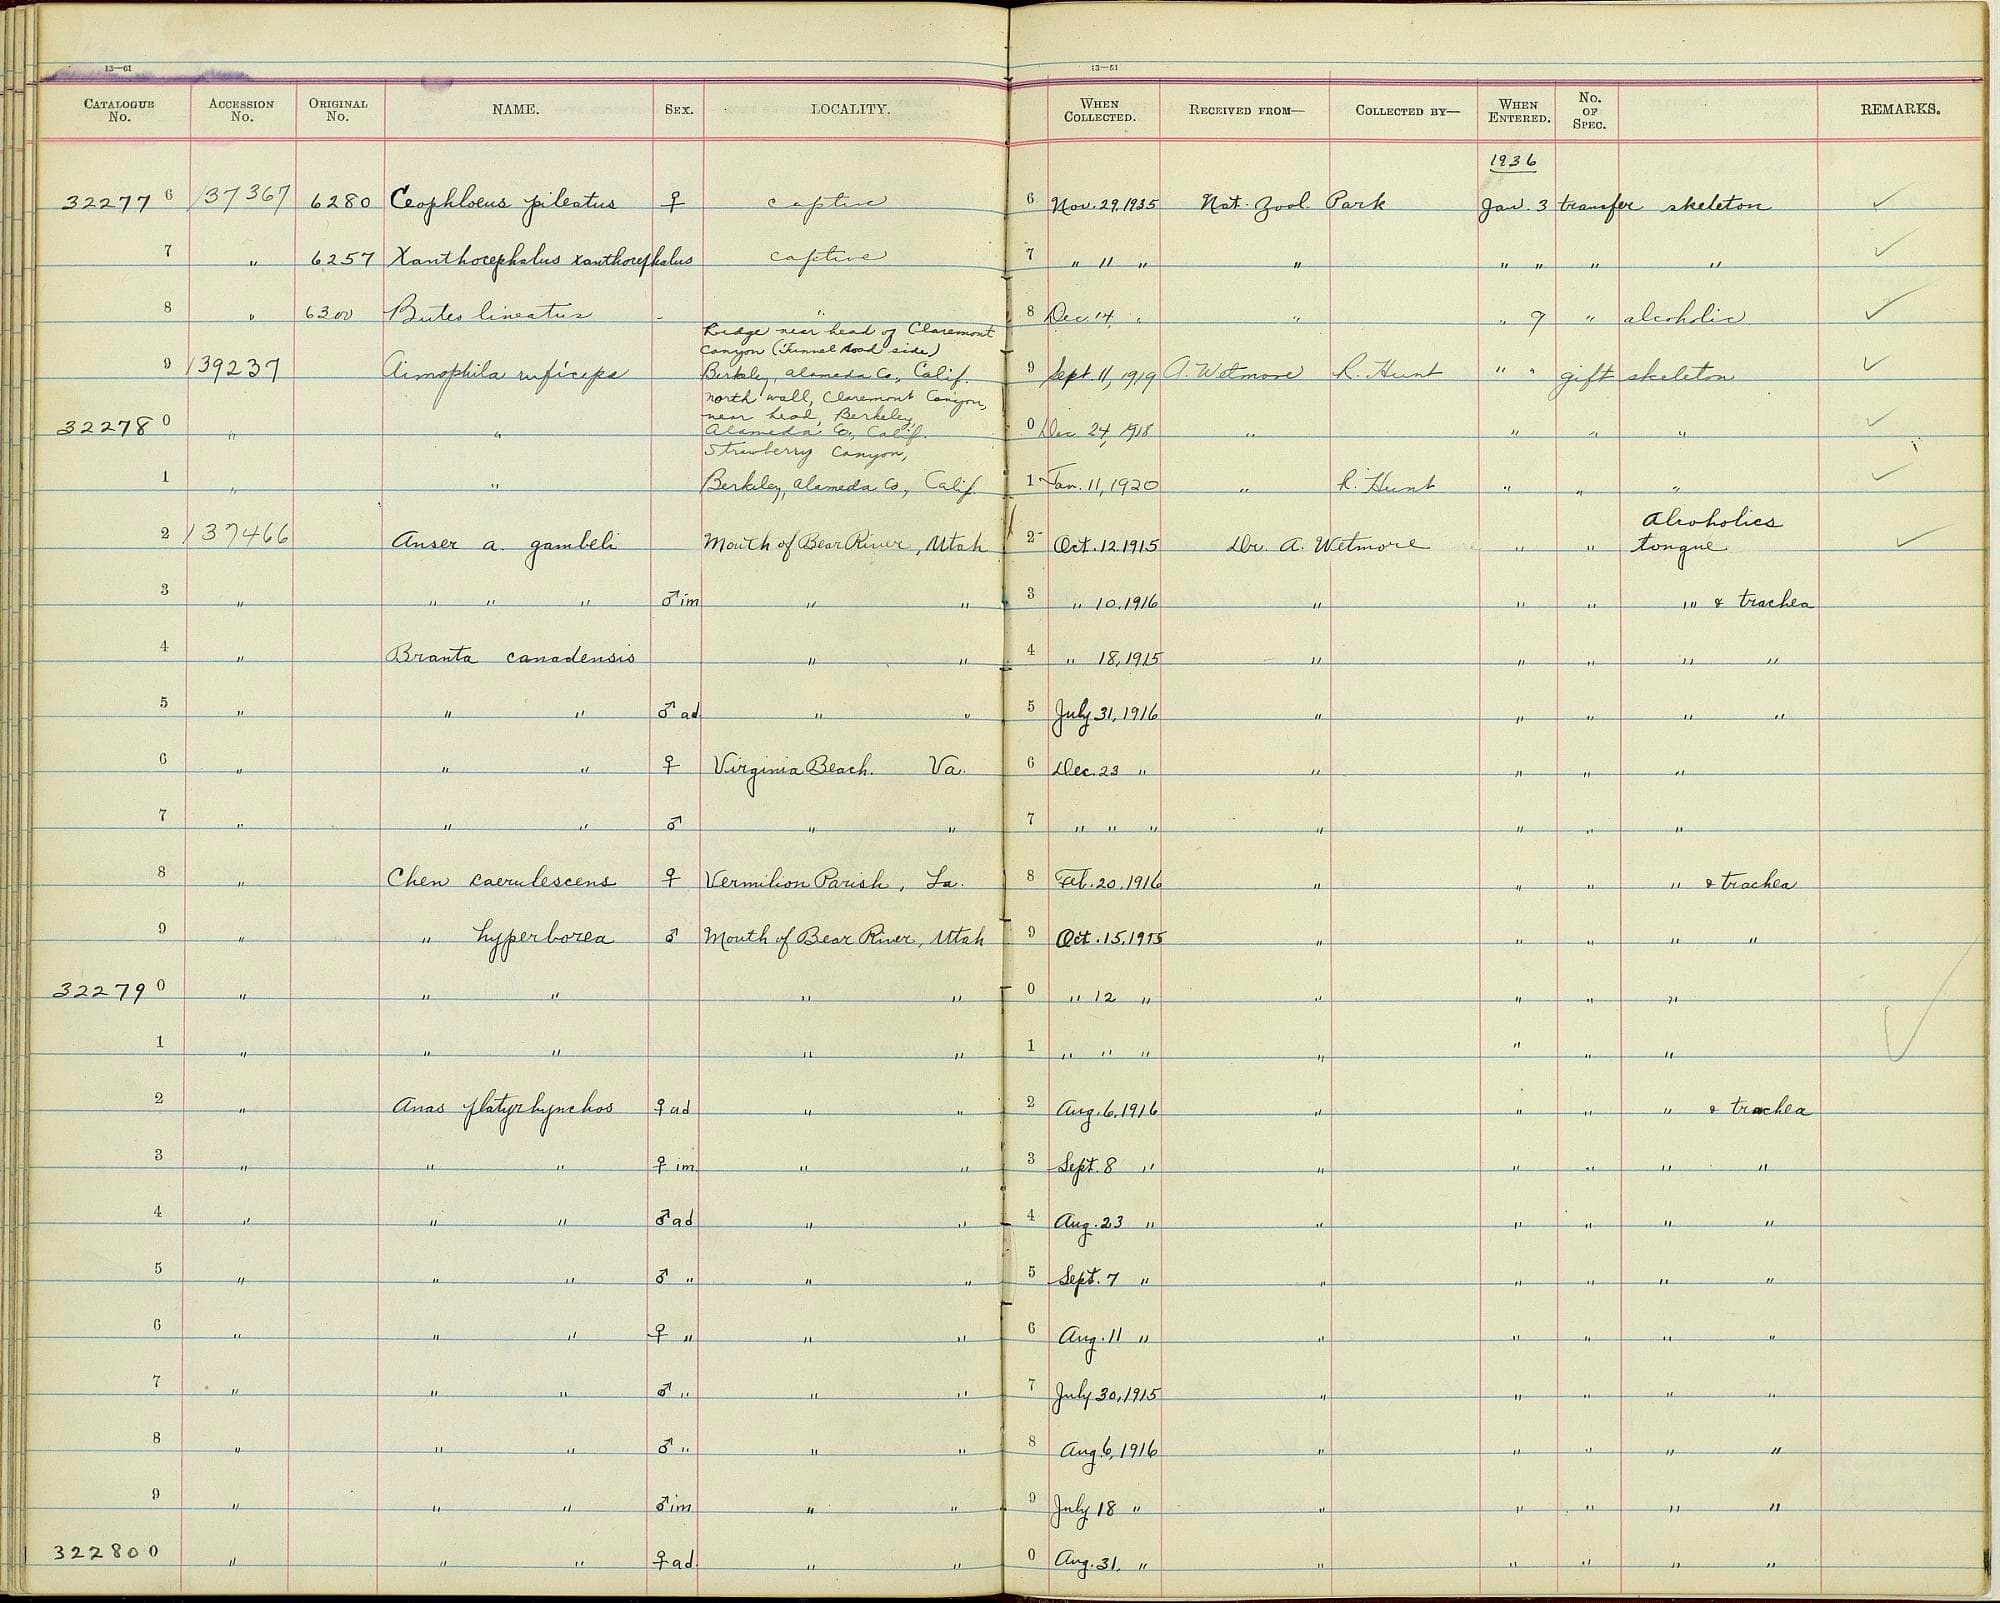 13—61
13—51
CATALOGUE No. ACCESSION No. ORIGINAL No. NAME. SEX. LOCALITY. WHEN COLLECTED. RECEIVED FROM— COLLECTED BY— WHEN ENTERED. No. OF SPEC. REMARKS.
1936
322776 137367 6280 Ceophloeus pileatus ♀ captive 6 Nov. 29, 1935 Nat. Zool. Park Jan. 3 transfer skeleton ✓
7 " 6257 Xanthocephalus xanthocephalus captive 7 " " " " " " " " ✓
8 " 6300 Buteo lineatus - " 8 Dec. 14, " " " 9 " alcoholic ✓
Ridge near head of Claremont
Canyon (Tunnel Road side)
9 139237 Aimophila ruficeps Berkeley, Alameda Co., Calif. 9 Sept. 11, 1919 A. Wetmore R. Hunt " " gift skeleton ✓
North wall, Claremont Canyon,
near head, Berkeley,
322780 " " Alameda Co., Calif. 0 Dec. 24, 1918 " " " " ✓
Strawberry Canyon,
1 " " Berkeley, Alameda Co., Calif. 1 Jan. 11, 1920 " R. Hunt " " " ✓
Alcoholics
2 137466 Anser a. gambeli Mouth of Bear River, Utah 2 Oct. 12, 1915 Dr. A. Wetmore " " tongue ✓
3 " " " " ♂ im " " 3 " 10, 1916 " " " " & trachea
4 " Branta canadensis " " 4 " 18, 1915 " " " " "
5 " " " ♂ ad " " 5 July 31, 1916 " " " " "
6 " " " ♀ Virginia Beach. Va. 6 Dec. 23 " " " " "
7 " " " ♂ " " 7 " " " " " " "
8 " Chen caerulescens ♀ Vermilion Parish, La. 8 Feb. 20, 1916 " " " " & trachea
9 " " hyperborea ♂ Mouth of Bear River, Utah 9 Oct. 15, 1915 " " " " "
322790 " " " " " 0 " 12 " " " " "
1 " " " " " 1 " " " " " " " ✓
2 " Anas platyrhynchos ♀ ad " " 2 Aug. 6, 1916 " " " " & trachea
3 " " " ♀ im " " 3 Sept. 8 " " " " " "
4 " " " ♂ ad " " 4 Aug. 23 " " " " " "
5 " " " ♂ " " " 5 Sept. 7 " " " " " "
6 " " " ♀ " " " 6 Aug. 11 " " " " " "
7 " " " ♂ " " " 7 July 30, 1915 " " " " "
8 " " " ♂ " " " 8 Aug. 6, 1916 " " " " "
9 " " " ♂ im " " 9 July 18 " " " " " "
322800 " " " ♀ ad " " 0 Aug. 31, " " " " " "